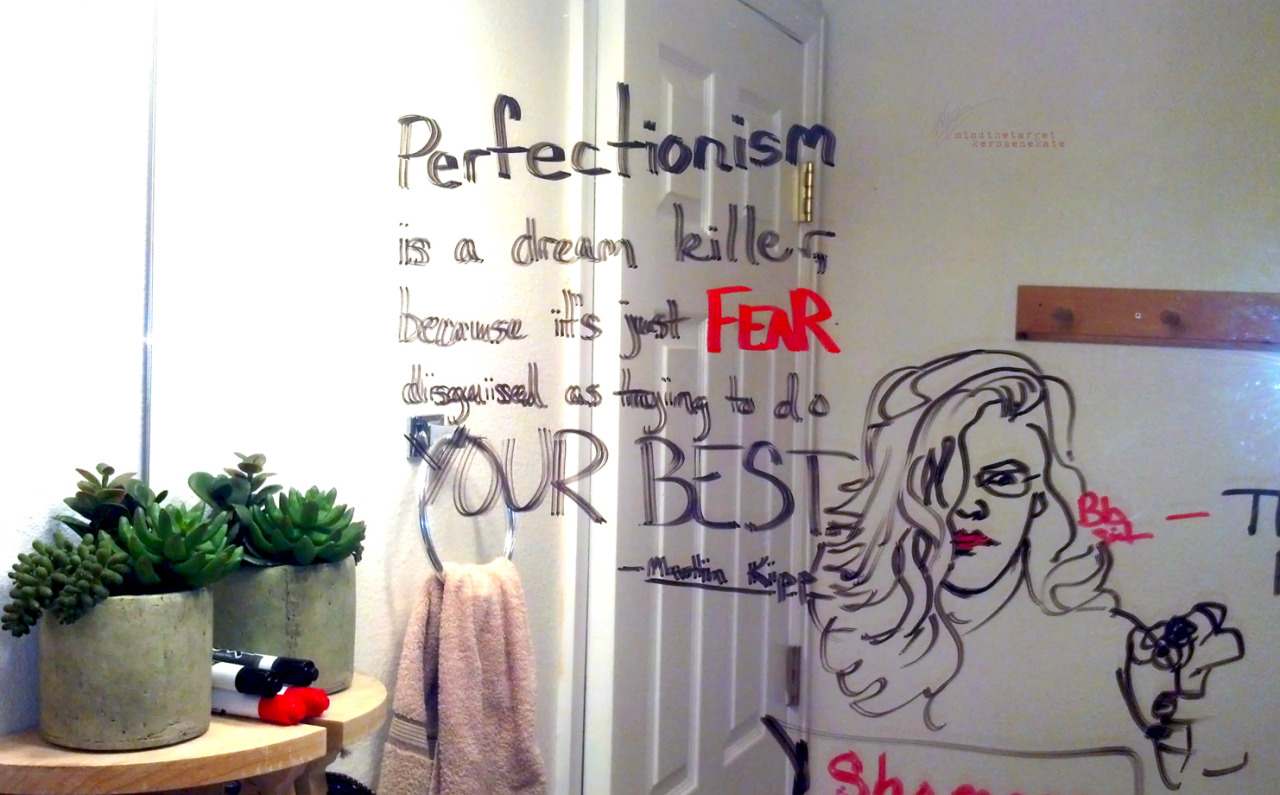 Perfectionism
is a dream killer,
because it's just FEAR
disguised as trying to do
YOUR BEST.
— Martin Kipp
mindthetarget
kerosenekate